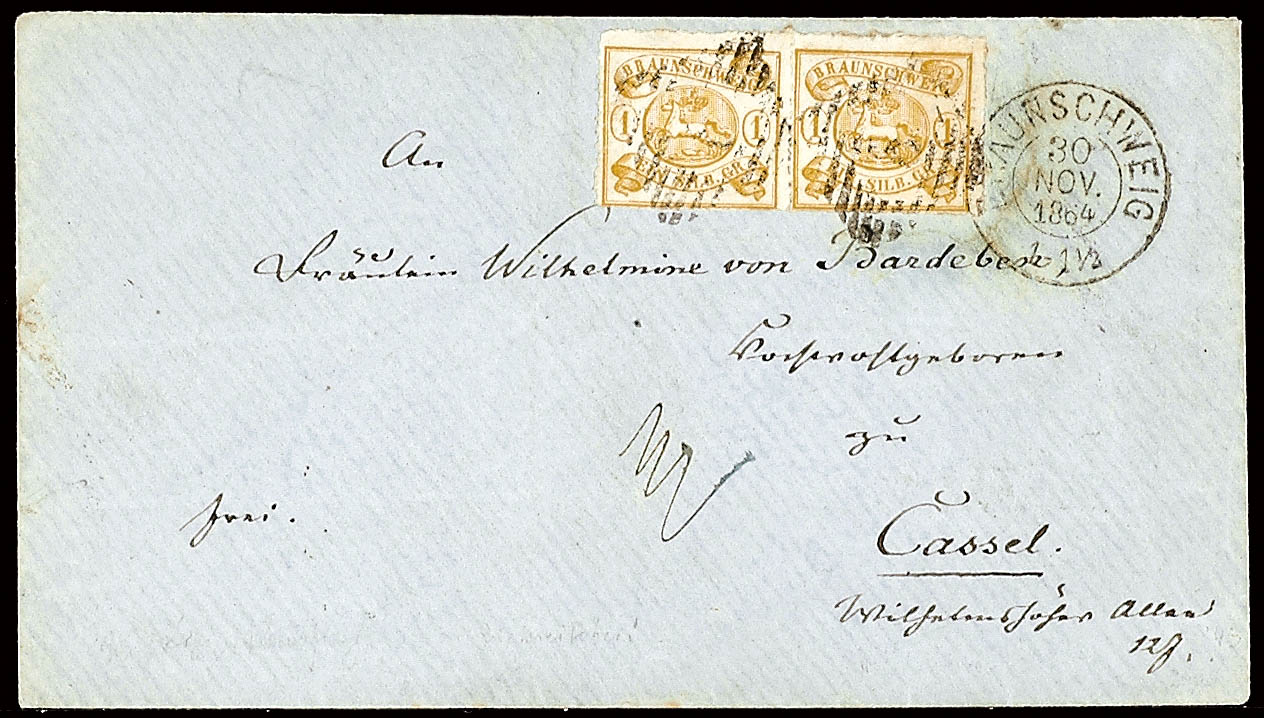 BRAUNSCHWEIG
1 1
EIN SILB. GR.
BRAUNSCHWEIG
1 1
EIN SILB. GR.
BRAUNSCHWEIG
30
NOV.
1864
An
Fräulein Wilhelmine von Bardeleben,
Hochwohlgeboren
zu
frei.
Cassel.
Wilhelmshöher Allee